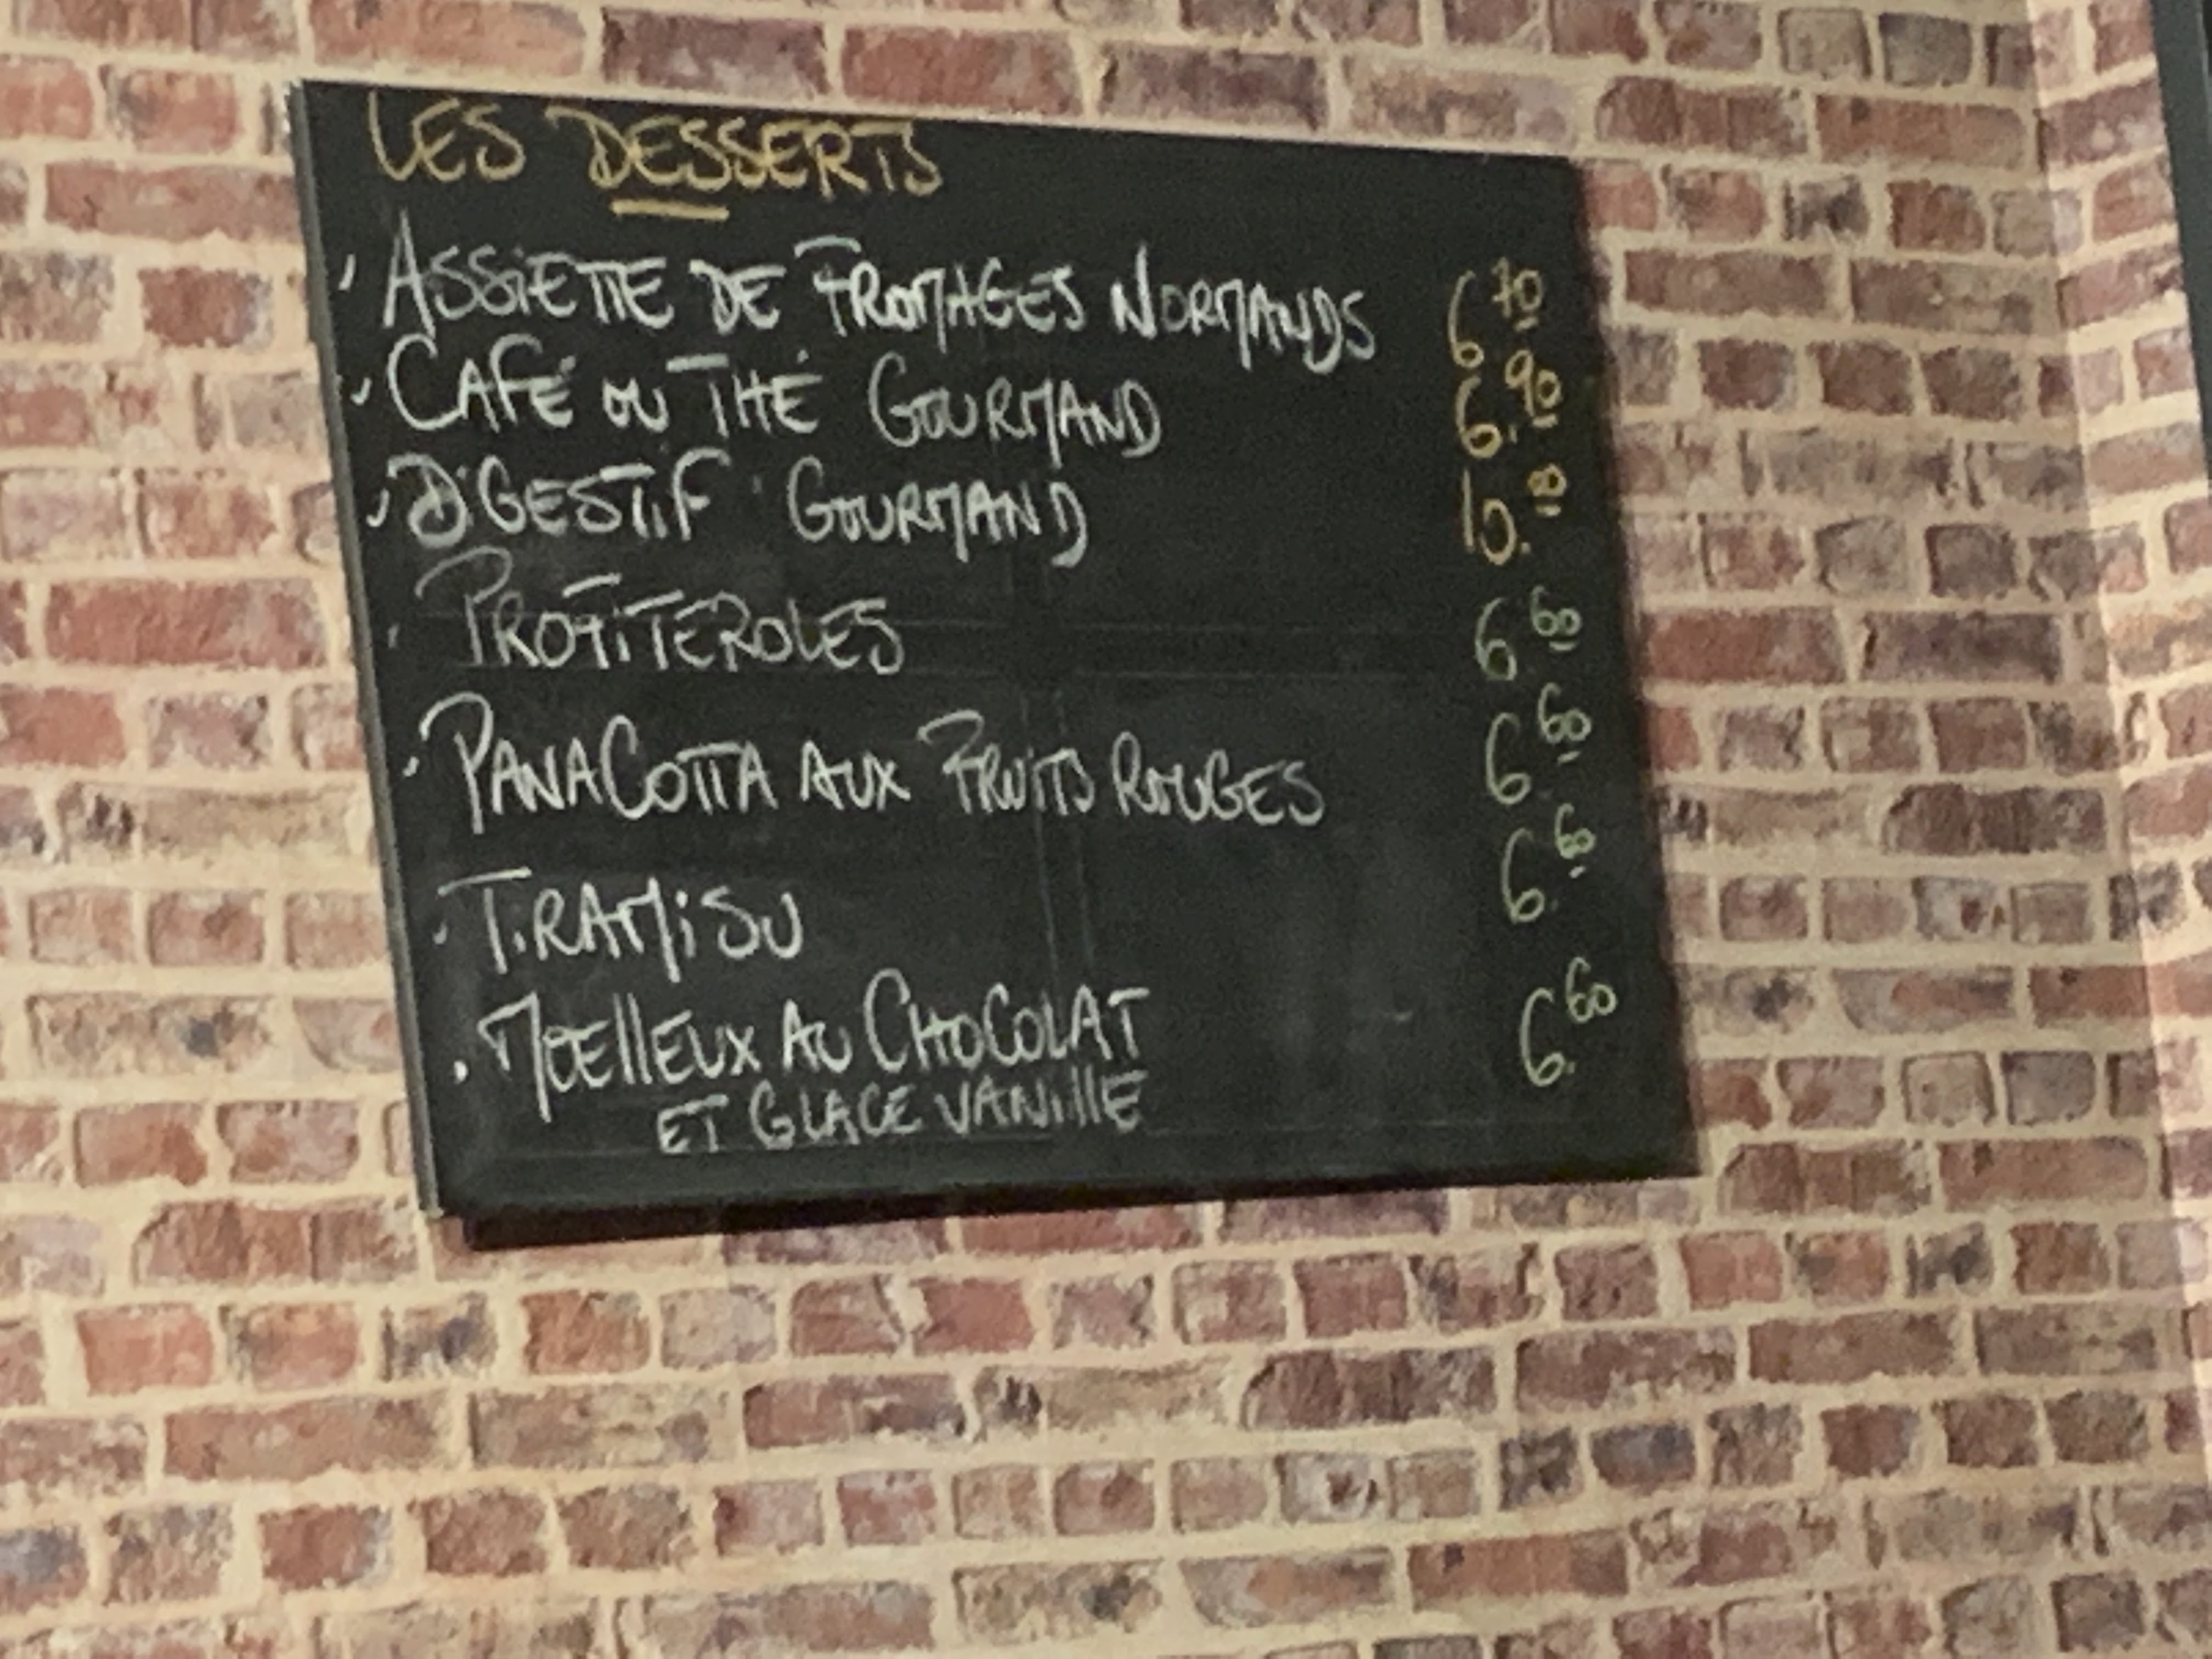 LES DESSERTS
ASSIETTE DE FROMAGES NORMANDS 6.70
CAFÉ OU THÉ GOURMAND 6.90
DIGESTIF GOURMAND 10.00
PROFITEROLES 6.60
PANACOTTA AUX FRUITS ROUGES 6.60
TIRAMISU 6.60
MOELLEUX AU CHOCOLAT 6.60
ET GLACE VANILLE